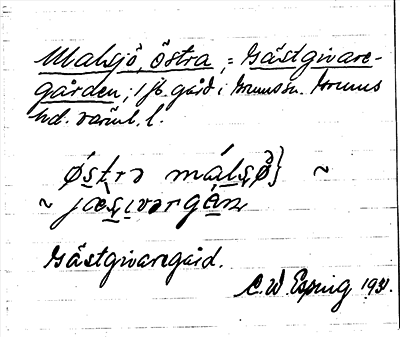 Malsjö, Östra, = Gästgivare-
gården; 1/2 gård i Grums sn. Grums
hd. Värml. l.
østrə målsø} ~
~ jæsivərgån
Gästgivaregård.
C. W. Esping 1931.